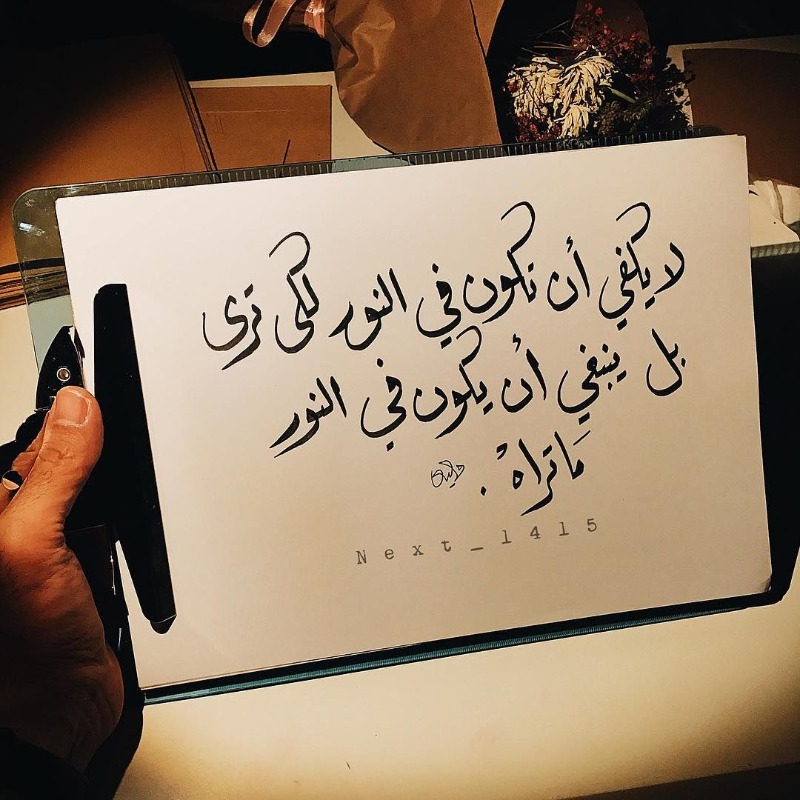 لا يكفي أن تكون في النور لكى ترى
بل ينبغي أن يكون في النور
مَا تراهْ .
Next_1415